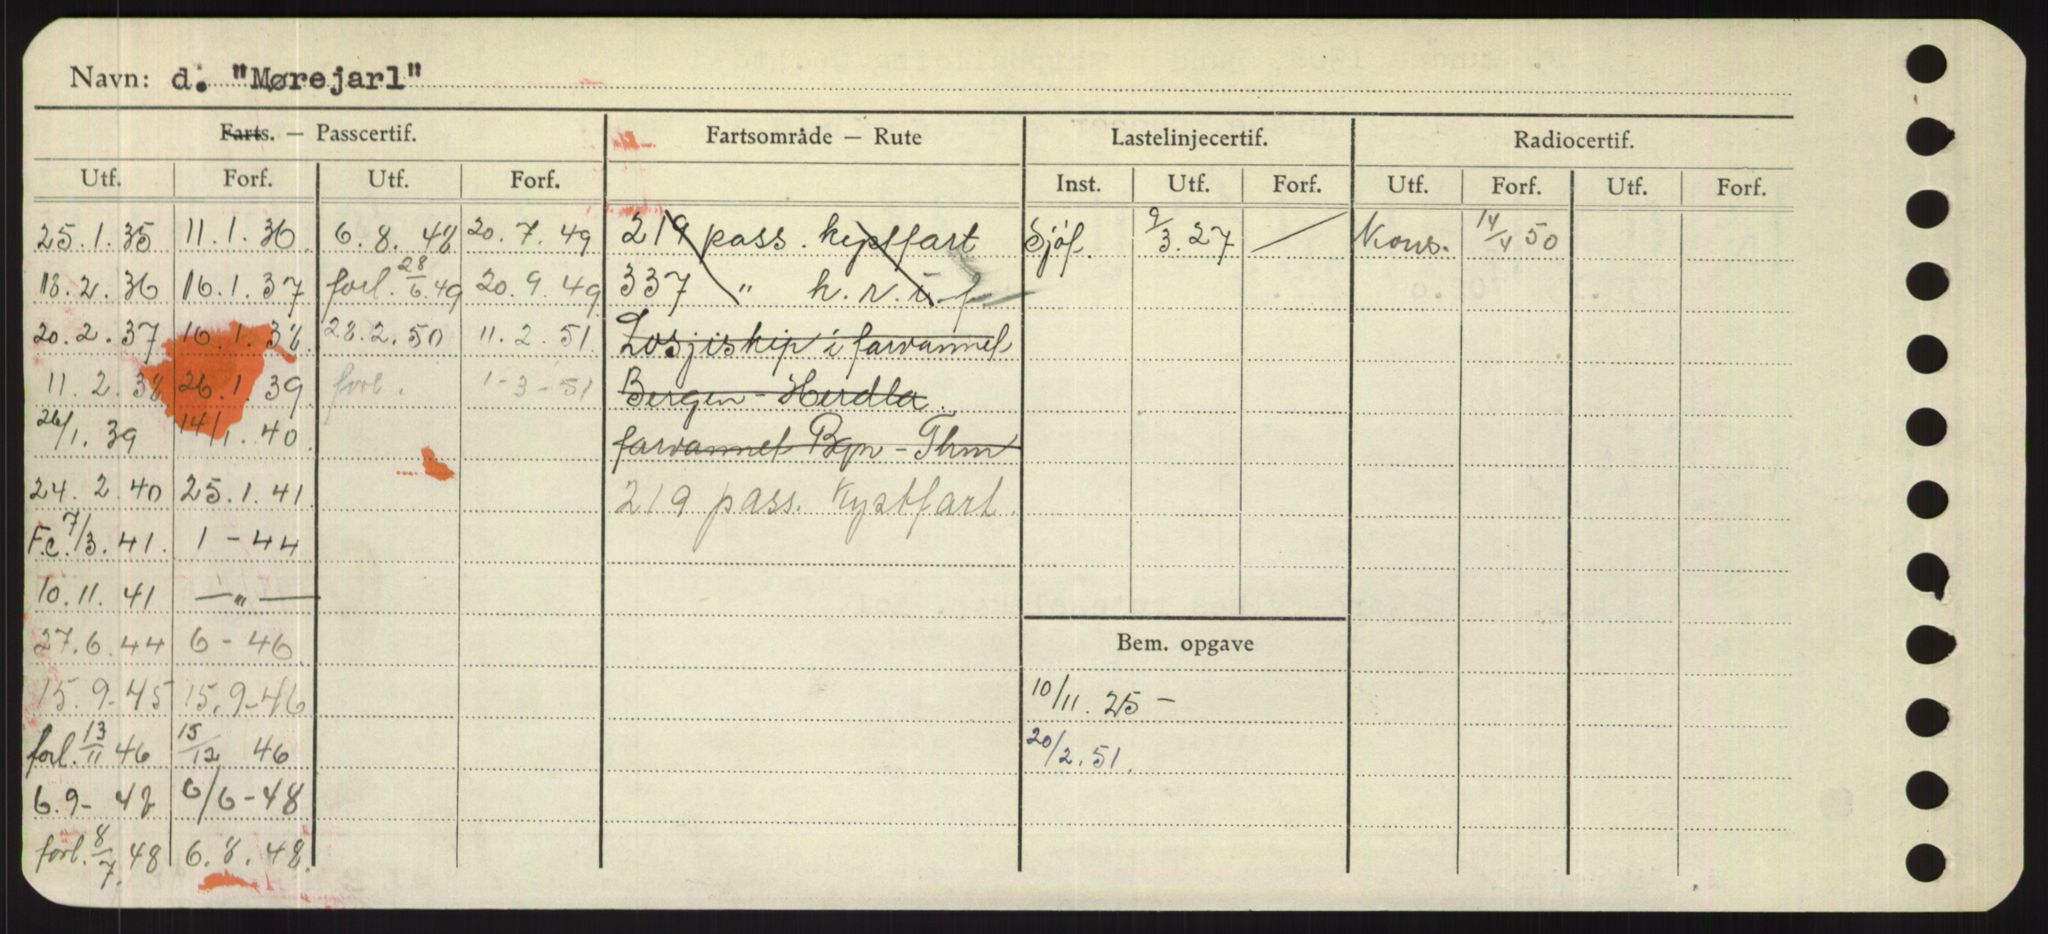 Navn: d. "Mørejarl"
Farts. — Passcertif. Fartsområde — Rute Lastelinjecertif. Radiocertif.
Utf. Forf. Utf. Forf. Inst. Utf. Forf. Utf. Forf. Utf. Forf.
25.1.35 11.1.36 6.8.48 20.7.49 219 pass. kystfart Sjöf. 9/3.27 — Kons. 14/4 50
18.2.36 16.1.37 forl. 28/6.49 20.9.49 337 " h.r.i.f
20.2.37 16.1.38 28.2.50 11.2.51 Losjiskip i farvannet
11.2.38 26.1.39 forl. 1-3-51 Bergen - Herdla
26/1.39 14/1.40 farvannet Bgn - Thm
24.2.40 25.1.41 219 pass. Kystfart.
F.c. 7/3.41. 1-44
10.11.41 — " —
27.6.44 6-46 Bem. opgave
15.9-45 15.9-46 10/11. 25 -
forl. 13/11 46 15/12 46 20/2.51.
6.9- 47 6/6-48
forl. 8/7.48 6.8.48.